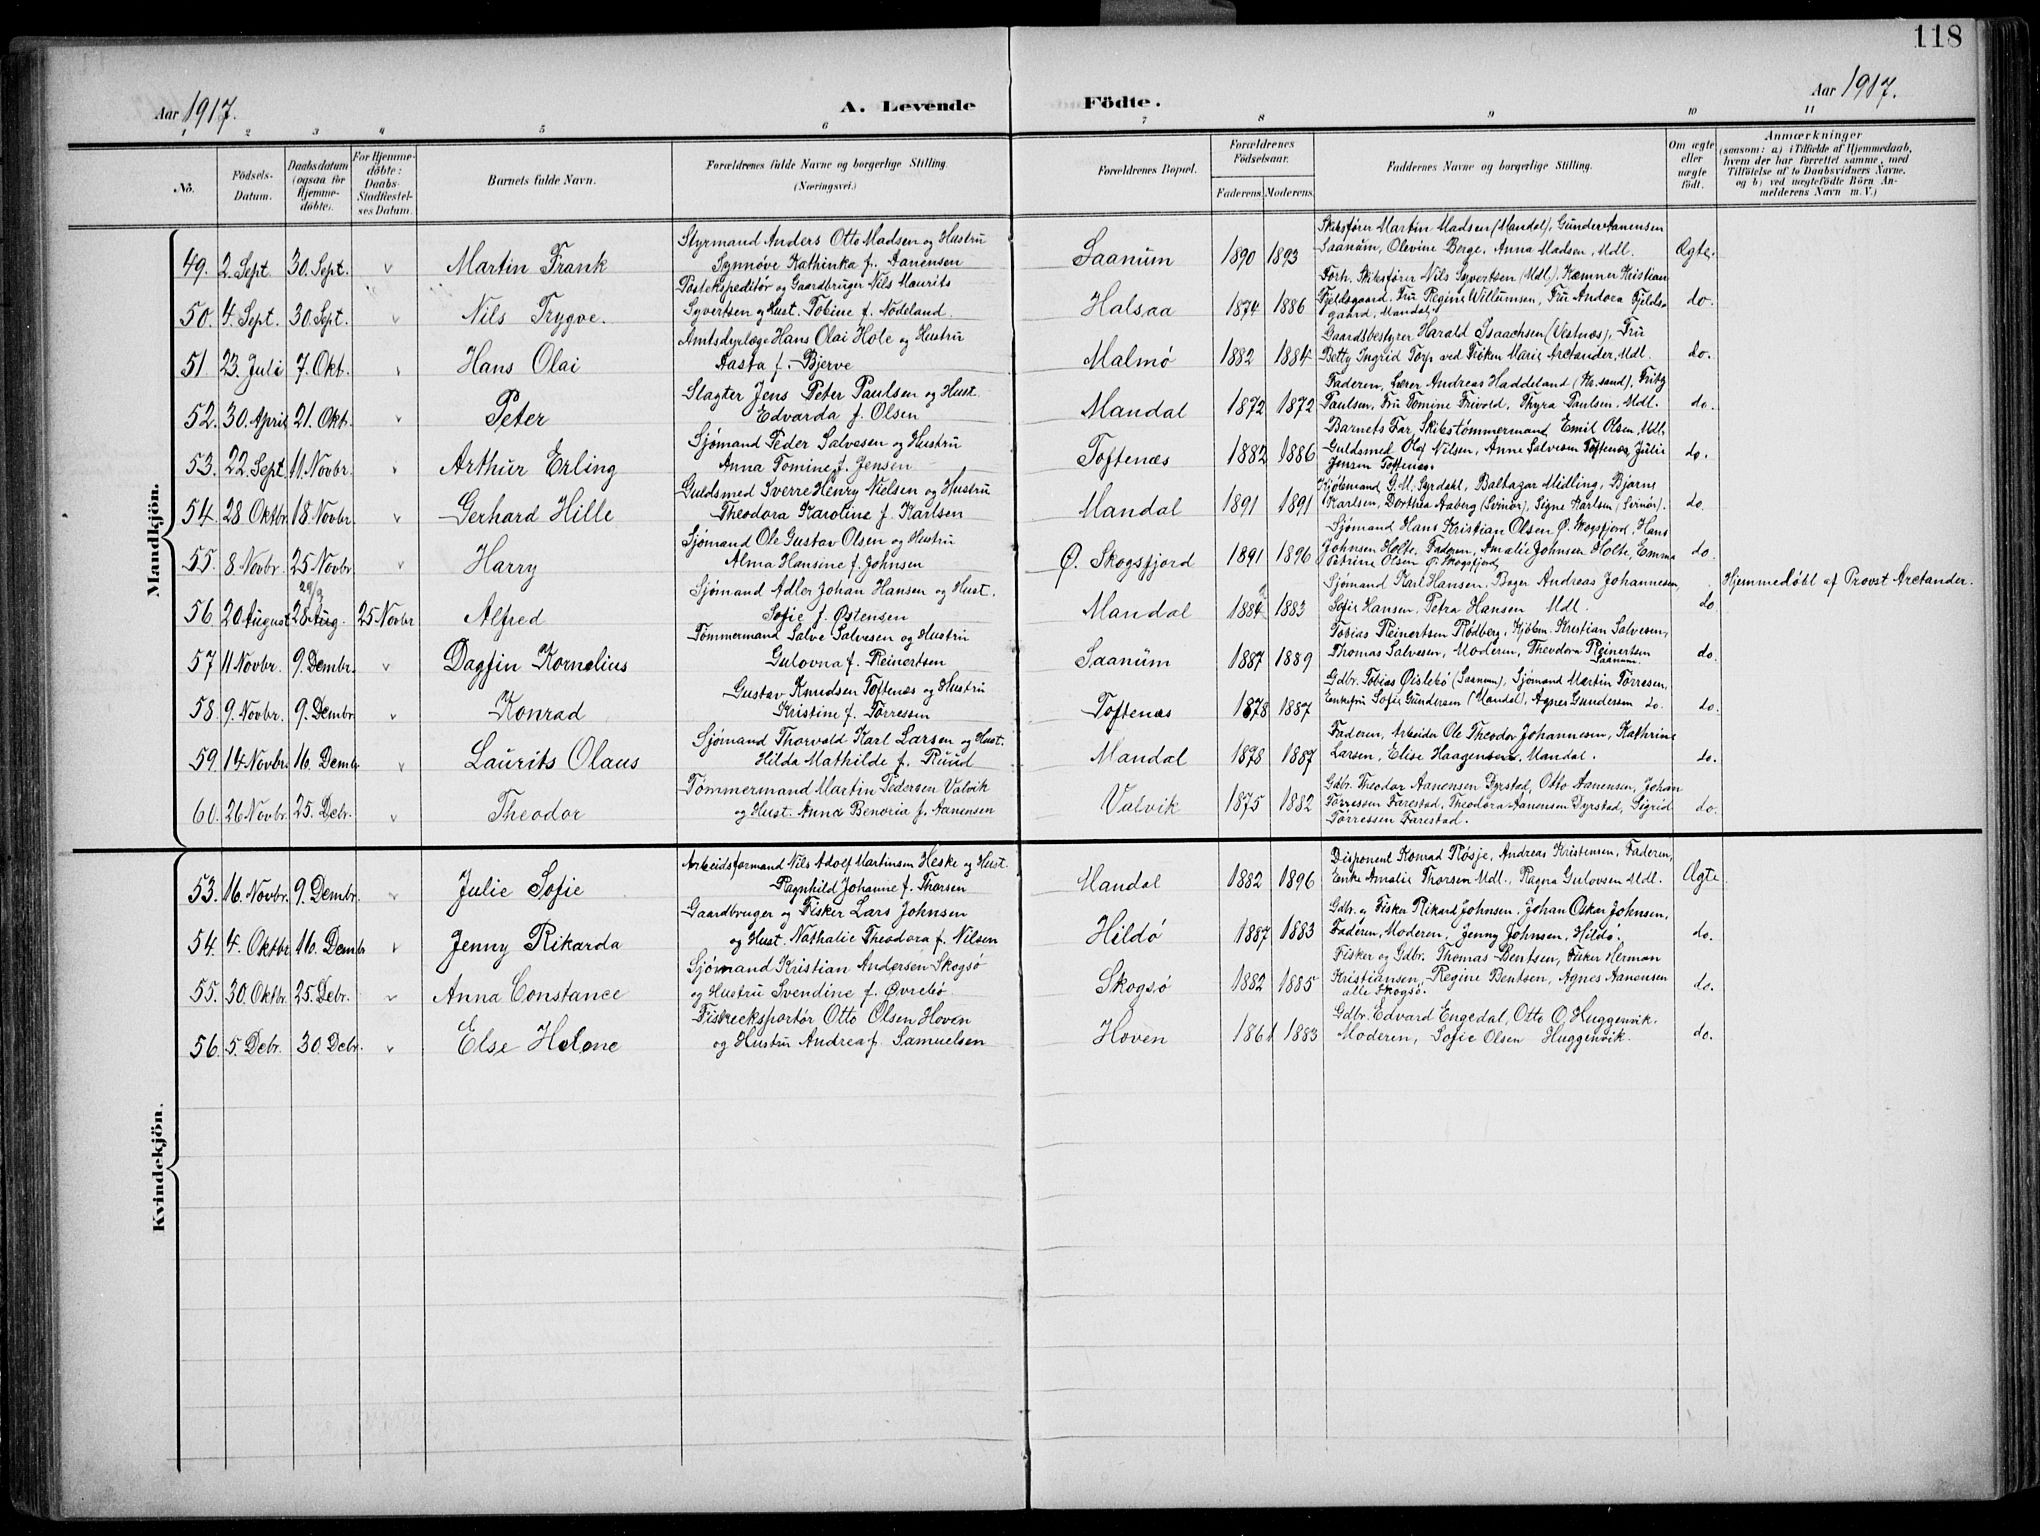 118
Aar 1917.
A. Levende Födte.
Aar 1917.
1 2 3 4 5 6 7 8 9 10 11
No.
Födsels-Datum.
Daabsdatum (ogsaa for Hjemme-döbte).
For Hjemme-döbte: Daabs-Stadfæstel-ses Datum.
Barnets fulde Navn.
Forældrenes fulde Navne og borgerlige Stilling. (Næringsvei.)
Forældrenes Bopæl.
Forældrenes Födselsaar.
Faderens. Moderens.
Faddernes Navne og borgerlige Stilling.
Om ægte eller uægte födt.
Anmærkninger (saasom: a.) i Tilfælde af Hjemmedaab, hvem der har forrettet samme, med Tilföielse af to Daabsvidners Navne, og b.) ved uægtefödte Börn An-melderens Navn m. V.)
Mandkjön.
49. 2. Sept 30. Sept. v Martin Frank Styrmand Anders Otto Madsen og Hustru Synnøve Kathinka f. Aanensen Saanum 1890 1893 Skibsfører Martin Madsen (Mandal), Gunder Aanensen Saanum, Olevine Berge, Anna Madsen, Mdl. Ægte.
50. 4. Sept. 30. Sept. v Nils Trygve. Postekspeditør og Gaardbruger Nils Maurits Syvertsen og Hust. Tobine f. Nødeland. Halsaa 1874 1886 Forh. Skibsfører Nils Syvertsen (Mdl), Kæmner Kristian Fjeldsgaard, Fru Regine Willumsen, Fru Andrea Fjelds-gaard, Mandal. do.
51 23. Juli 7. Okt. v Hans Olai Amtsdyrlæge Hans Olai Hole og Hustru Aasta f. Bjerve Malmø 1882 1884 Gaardsbestyrer Harald Isaachsen (Vestnæs), Fru Betty Ingrid Torp ved Frøken Marie Arctander, Mdl. do.
52. 30. April 21. Okt. v Peter Slagter Jens Peter Paulsen og Hust. Edvarda f. Olsen Mandal 1872 1872 Faderen, Lærer Andreas Haddeland (Kr.sand), Fritz Paulsen, Fru Tomine Frivold, Thyra Paulsen, Mdl. do.
53. 22. Sept. 11. Novbr. v Arthur Erling Sjømand Peder Salvesen og Hustru Anna Tomine f. Jensen Toftenæs 1882 1886 Barnets Far Skibstømmermand Emil Olsen, Mdl. Guldsmed Olaf Nilsen, Anne Salvesen Toftenæs, Julie Jensen Toftenæs. do.
54. 28 Oktbr. 18. Novbr. v Gerhard Hille Guldsmed Sverre Henry Nielsen og Hustru Theodora Karoline f. Karlsen Mandal 1891 1891 Kjøbmand G. M. Syrdahl, Baltazar Midling, Bjarne Karlsen, Dorthea Aaberg (Svinør), Signe Karlsen (Svinør). do
55. 8 Novbr. 25 Novbr. v Harry Sjømand Ole Gustav Olsen og Hustru Alma Hansine f. Johnsen Ø. Skogsfjord 1891 1896 Sjømand Hans Kristian Olsen Ø. Skogsfjord, Hans Johnsen Holte, Faderen, Amalie Johnsen Holte, Emma Petrine Olsen Ø. Skogsfjord. do
56. 20 August 28 Aug. 29/9 25 Novbr Alfred Sjømand Adler Johan Hansen og Hust. Sofie f. Østensen Mandal 1884 1883 Sjømand Karl Hansen, Bager Andreas Johannesen, Sofie Hansen, Petra Hansen Mdl. do Hjemmedøbt af Provst Arctander.
57 11 Novbr. 9. Dembr. v Dagfin Kornelius Tømmermand Salve Salvesen og Hustru Gulovna f. Reinertsen Saanum 1887 1889 Tobias Reinertsen Rødberg, Kjøbm. Kristian Salvesen, Thomas Salvesen, Moderen, Theodora Reinertsen Saanum. do.
58. 9. Novbr. 9. Dembr v Konrad Gustav Knudsen Toftenæs og Hustru Kristine f. Torressen Toftenæs 1878 1887 Gdbr. Tobias Øislebø (Saanum), Sjømand Martin Torresen, Enkefru Sofie Gundersen (Mandal), Agnes Gundersen do. do.
59. 14 Novbr. 16. Dembr v Laurits Olaus Sjømand Thorvald Karl Larsen og Hust. Hilda Mathilde f. Ruud Mandal 1878 1887 Faderen, Arbeider Ole Theodor Johannesen, Kathrine Larsen, Elise Haagensen, Mandal. do.
60. 26 Novbr. 25. Debr. v Theodor Tømmermand Martin Pedersen Valvik og Hust. Anna Benoria f. Aanensen Valvik 1875 1882 Gdbr. Theodor Aanensen Dyrstad, Otto Aanensen, Johan Torressen Farestad, Theodora Aanensen Dyrstad, Sigrid Torressen Farestad. do.
Kvindekjön.
53. 16. Novbr. 9. Dembr. v Julie Sofie Arbeidsformand Nils Adolf Martinsen Heske og Hust. Ragnhild Johanne f. Thorsen Mandal 1882 1896 Disponent Konrad Røsje, Andreas Kristensen, Faderen, Enke Amalie Thorsen Mdl., Ragna Gulovsen Mdl. Ægte
54. 4. Oktbr. 16. Dembr v Jenny Rikarda Gaardbruger og Fisker Lars Johnsen og Hust. Nathalie Theodora f. Nilsen Hildø 1887 1883 Gdbr. og Fisker Rikard Johnsen, Johan Oskar Johnsen, Faderen, Moderen, Jenny Johnsen, Hildø. do.
55. 30. Oktbr. 25. Debr. v Anna Constance Sjømand Kristian Andersen Skogsø og Hustru Svendine f. Øvrebø Skogsø 1882 1885 Fisker og Gdbr. Thomas Bentsen, Fisker Herman Kristiansen, Regine Bentsen, Agnes Aanensen alle Skogsø. do.
56. 5. Debr. 30. Debr. v Else Helene Fiskeeksportør Otto Olsen Hoven og Hustru Andrea f. Samuelsen Hoven 1861 1883 Gdbr. Edvard Engedal, Otto O. Huggenvik. Moderen, Sofie Olsen Huggenvik. do.